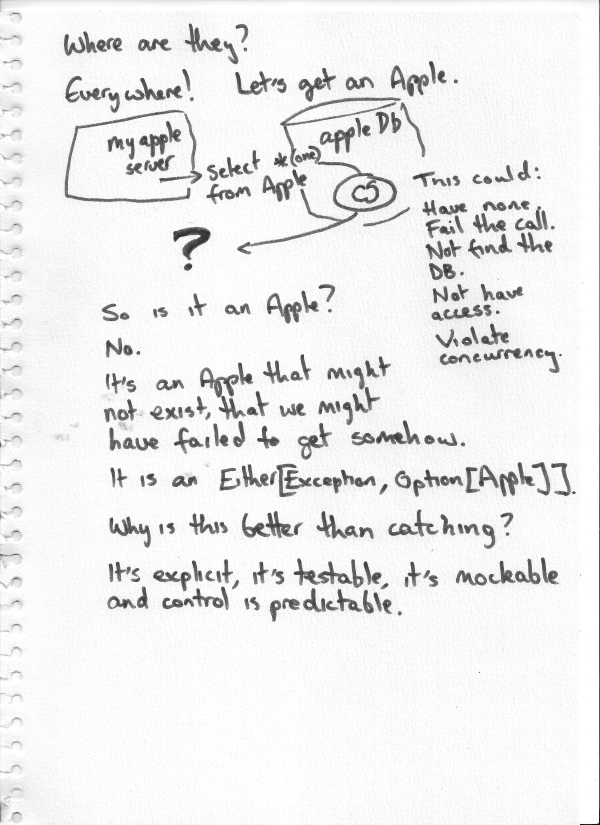 Where are they?
Everywhere! Let's get an Apple.
my apple
server
apple Db
Select *(one)
from Apple
?
This could:
Have none.
Fail the call.
Not find the
DB.
Not have
access.
Violate
concurrency.
So is it an Apple?
No.
It's an Apple that might
not exist, that we might
have failed to get somehow.
It is an Either[Exception, Option[Apple]].
Why is this better than catching?
It's explicit, it's testable, it's mockable
and control is predictable.